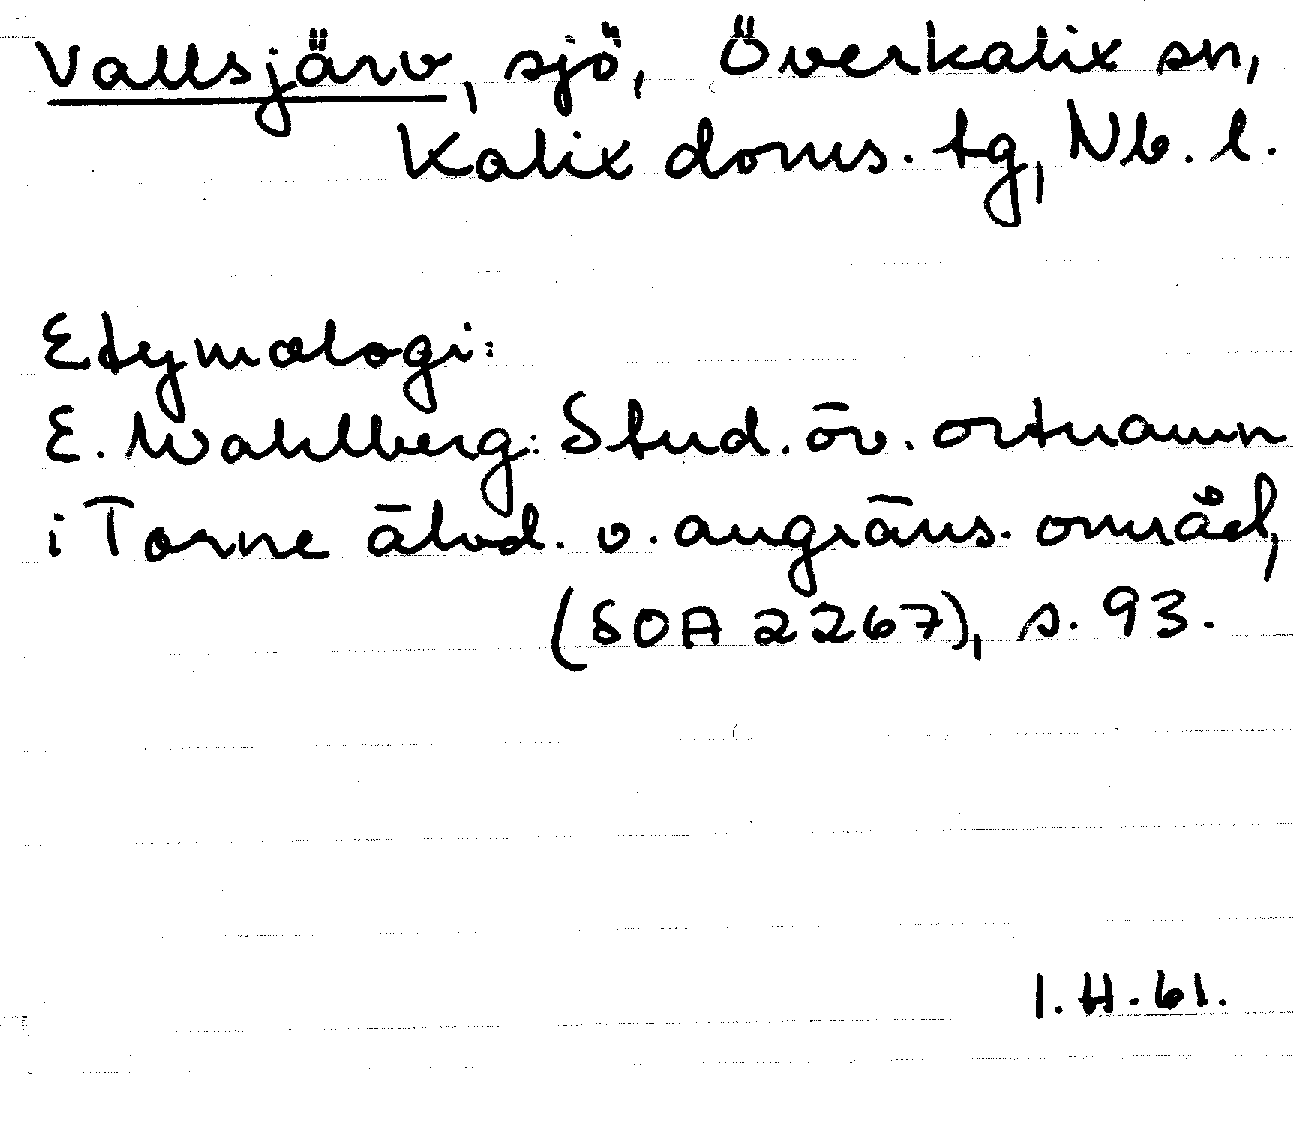 Vallsjärv, sjö, Överkalix sn,
Kalix doms. tg, Nb. l.
Etymologi:
E. Wahlberg: Stud. öv. ortnamn
i Torne älvd. o. angräns. områd,
(SOA 2267), s. 93.
I. H. 61.